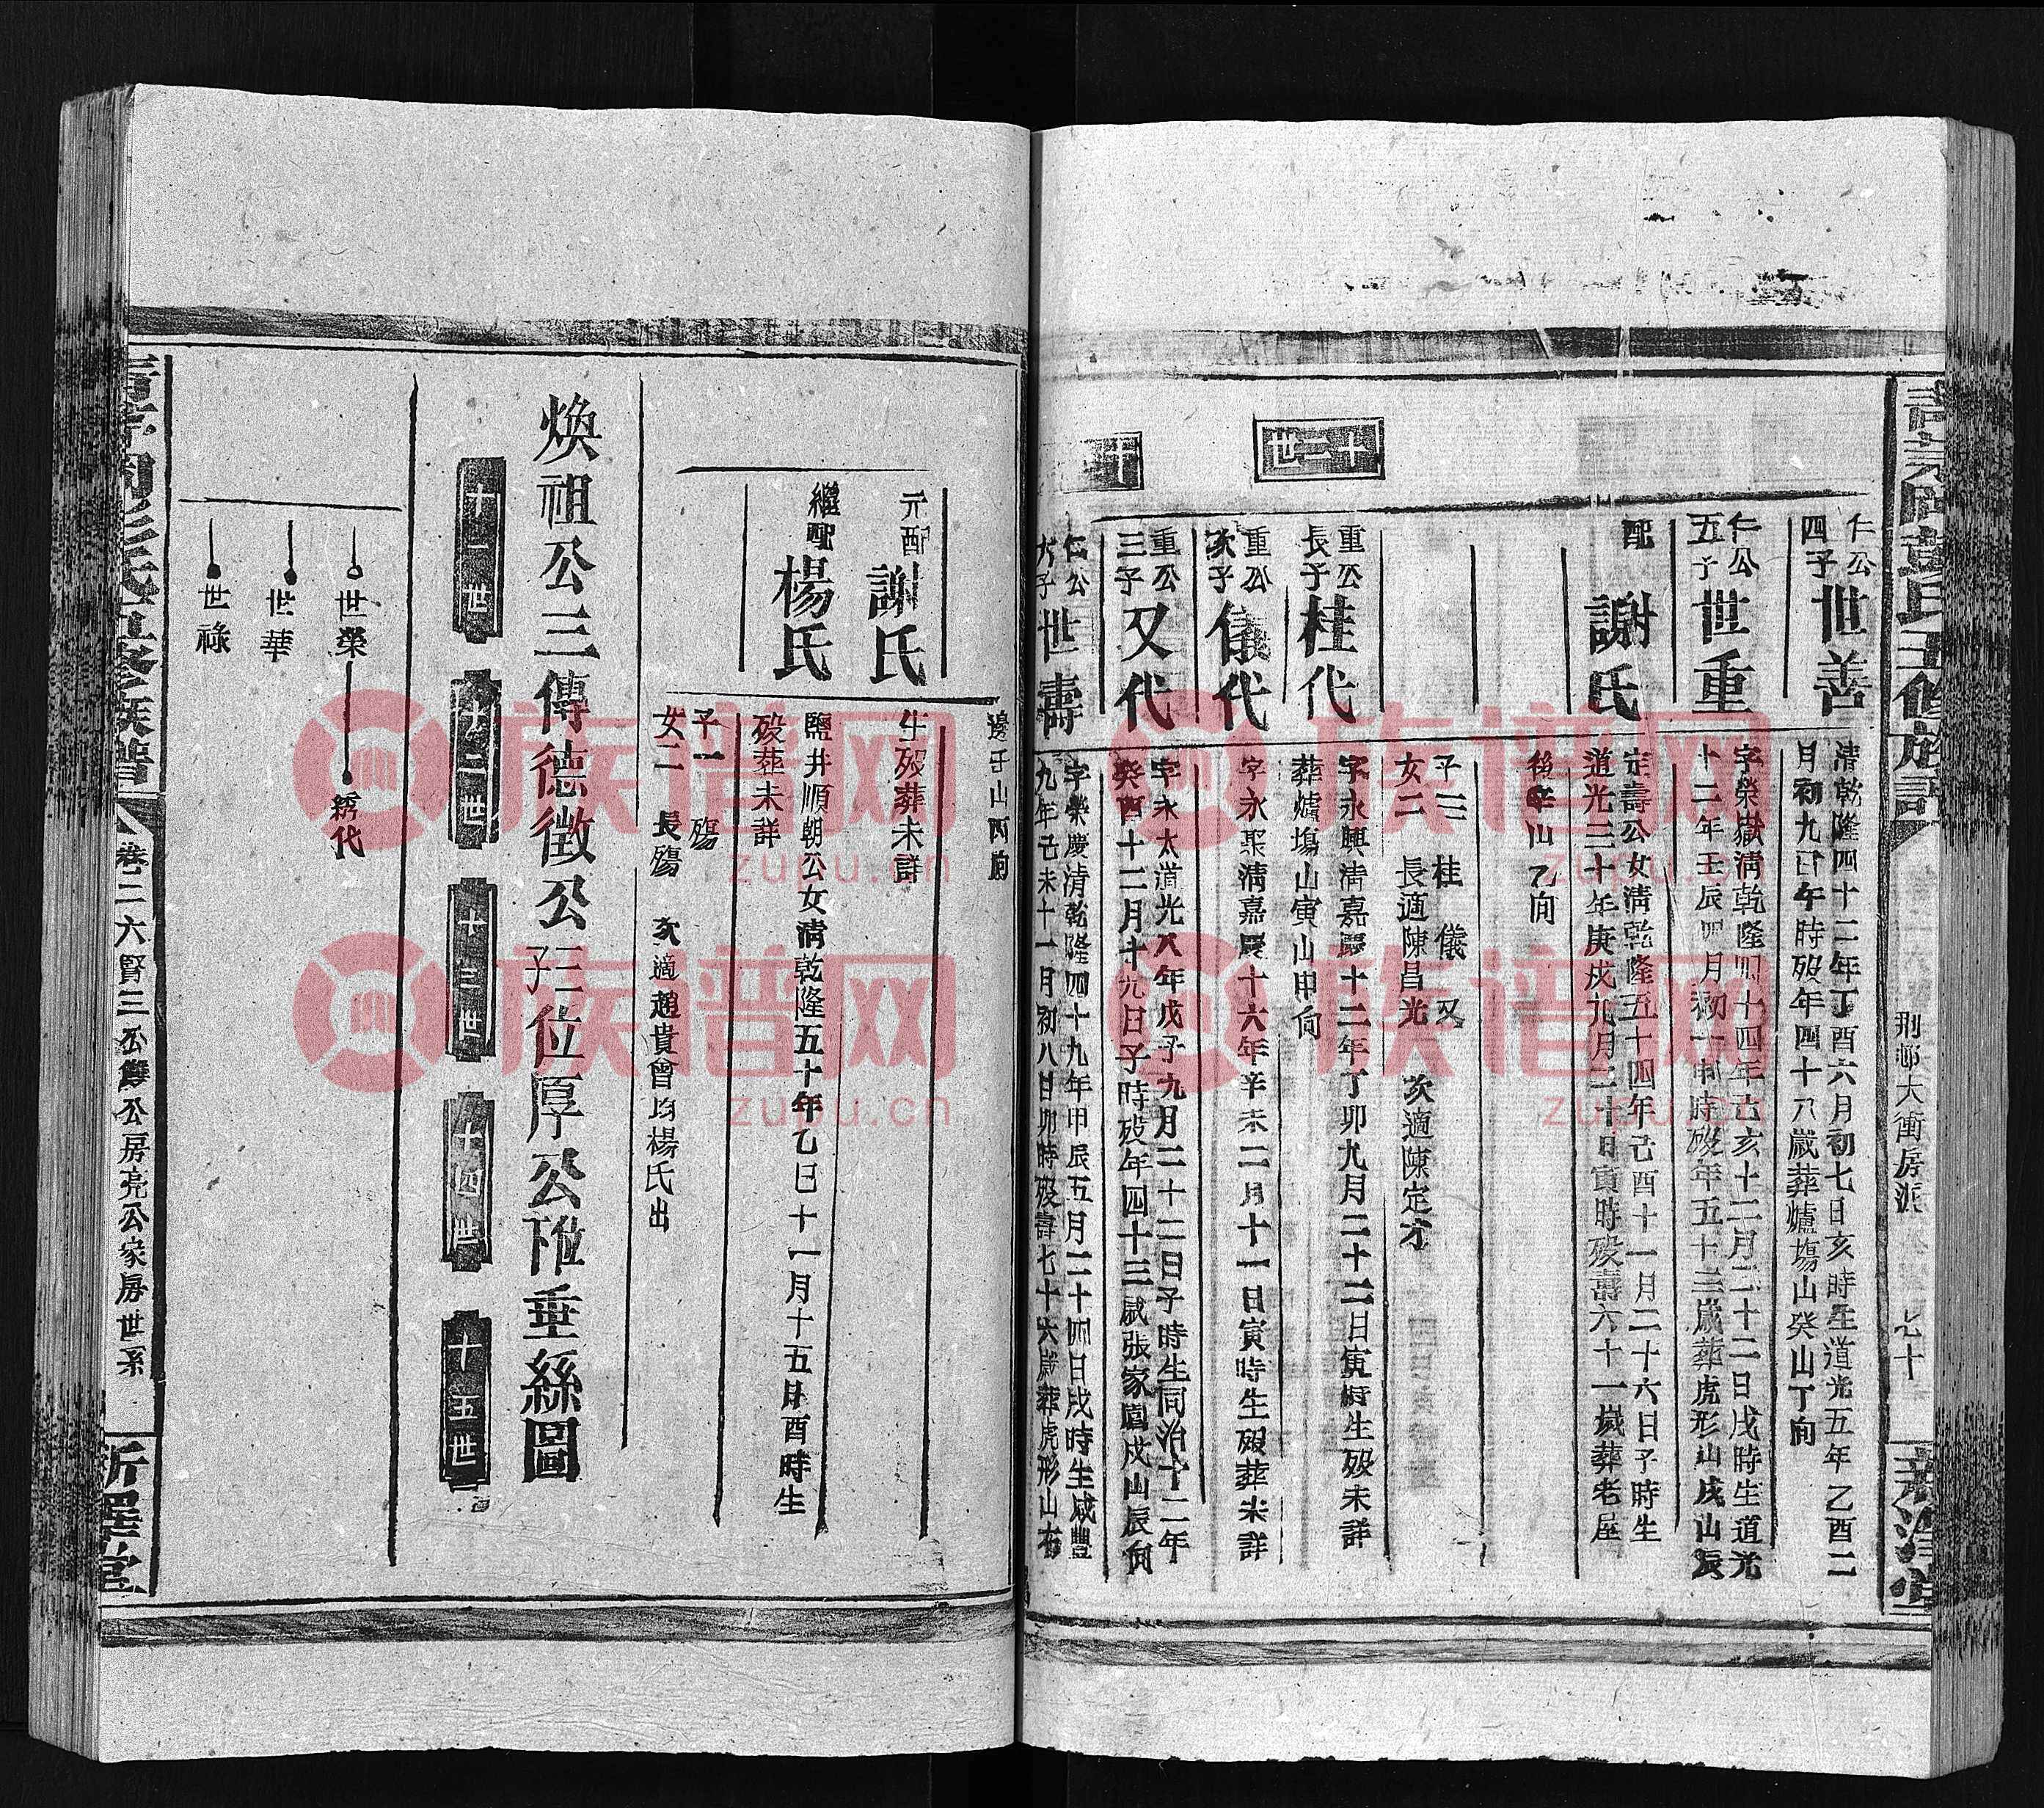 刑部大衡房派
七十
十二世
仁公四子
世善
清乾隆四十二年丁酉六月初七日亥時生道光五年乙酉二
月初九日午時殁年四十八歲葬爐塲山癸山丁向
仁公五子
世重
字榮嶽清乾隆四十四年己亥十二月二十二日戊時生道光
十二年壬辰四月初一申時殁年五十三歲葬虎形山戌山辰
配
謝氏
定壽公女清乾隆五十四年己酉十一月二十六日子時生
道光三十年庚戍九月二十日寅時殁壽六十一歲葬老屋
後辛山乙向
子三 桂 儀 又
女二 長適陳昌光 次適陳定才
重公長子
桂代
字永興清嘉慶十二年丁卯九月二十二日寅時生殁未詳
葬爐塲山寅山申向
重公次子
儀代
字永聚清嘉慶十六年辛未二月十一日寅時生殁葬未詳
重公三子
又代
字永太道光八年戊子九月二十二日子時生同治十二年
癸酉十二月十九日子時殁年四十三歲張家園戍山辰向
仁公六子
世壽
字榮慶清乾隆四十九年甲辰五月二十四日戌時生咸豐
九年己未十一月初八日卯時殁壽七十六歲葬虎形山右
邊子山丙向
元配
謝氏
生殁葬未詳
繼配
楊氏
鹽井順朝公女清乾隆五十年乙巳十一月十五日酉時生
殁葬未詳
子一 殤
女二 長殤 次適趙貴曾均楊氏出
煥祖公三傳德徵公三子位厚公脽垂絲圖
十一世
十二世
十三世
十四世
十五世
世榮
綉代
世華
世祿
氏五修族譜
卷二六賢三公雙公房亮公家房世系